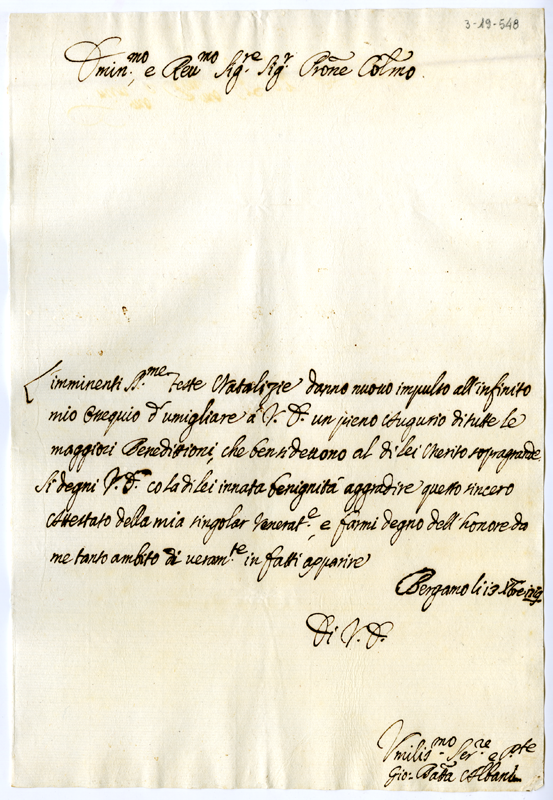 3-19-548
Emin.mo, e Reu.mo Sig.re Sig.r Prone Colmo.
L'imminenti S.me Feste Natalizie danno nuouo impulso all'infinito
mio Ossequio d'umigliare a V. E. un pieno Augurio di tutte le
maggiori Benedittioni, che ben si deuono al di lei Merito sopragrande.
Si degni V. E. co la di lei innata benignità aggradire questo sincero
Attestato della mia singolar Venerat.e, e farmi degno dell'honore da
me tanto ambito di ueram.te in fatti apparire
Bergamo li 13 Xbre
Di V. E.
Vmilis.mo Ser.re e
Gio: Batta Albani